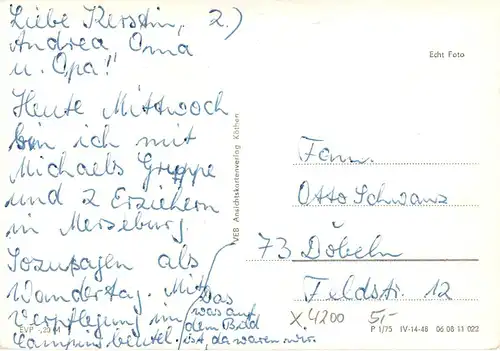 Liebe Kerstin, 2.)
Andrea, Oma
u. Opa!
Heute Mittwoch
bin ich mit
Michaels Gruppe
und 2 Erziehern
in Merseburg.
Sozusagen als
Wandertag. Mit
Verpflegung im
Campingbeutel.
Das
was auf
dem Bild
ist, da waren wir.
EVP -,20 M
VEB Ansichtskartenverlag Köthen
Echt Foto
Fam.
Otto Schwanz
73 Döbeln
Feldstr. 12
X 4200 5,-
P 1/75 IV-14-48 06 08 11 022